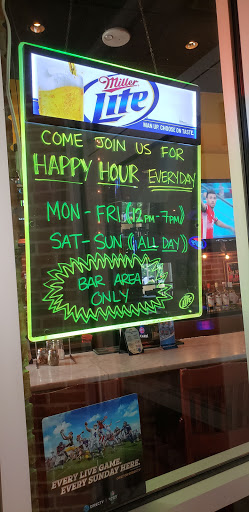 Miller
Lite
MAN UP. CHOOSE ON TASTE.
COME JOIN US FOR
HAPPY HOUR EVERYDAY
MON - FRI (12PM - 7PM)
SAT - SUN (ALL DAY)
BAR AREA
ONLY
Lite
EVERY LIVE GAME.
EVERY SUNDAY HERE.
DIRECTV